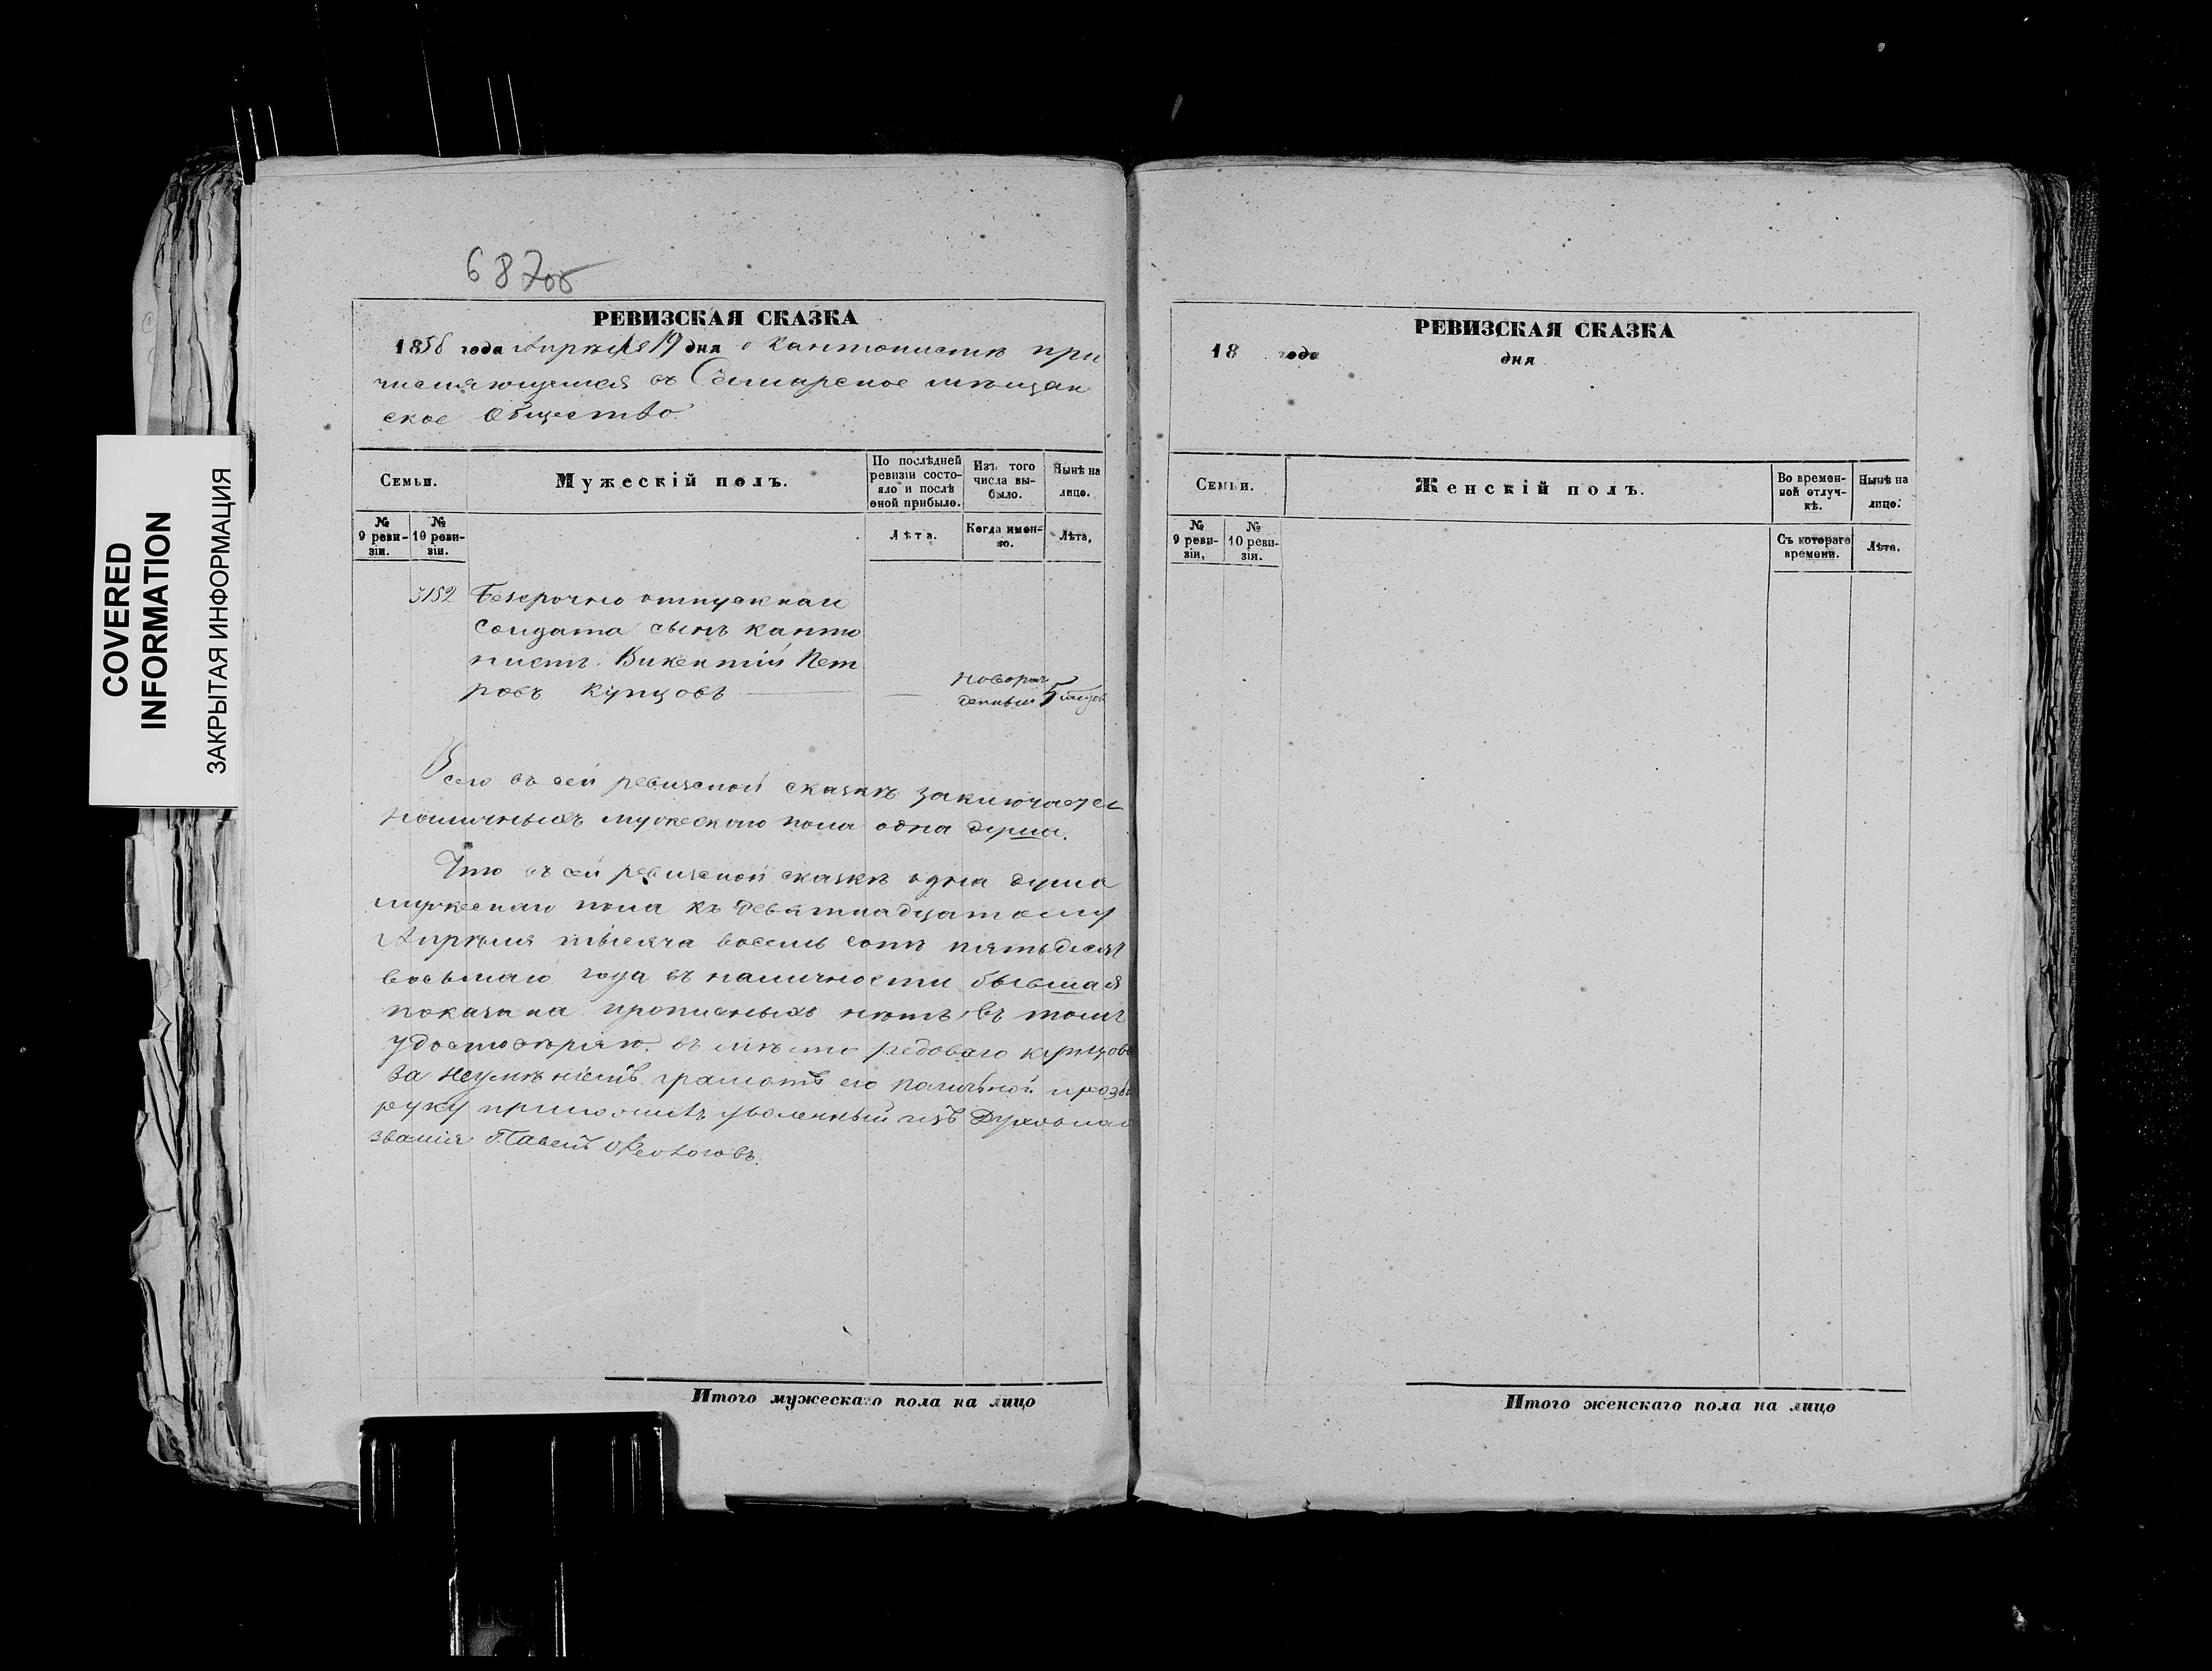 COVERED
INFORMATION
ЗАКРЫТАЯ ИНФОРМАЦИЯ
РЕВИЗСКАЯ СКАЗКА
1858 года Апреля 19 дня о Кантонистѣ при
числяющемся въ Самарское мѣщан
ское Общество
Семьи.
Мужескій полъ.
По послѣдней ревизіи состо-яло и послѣ оной прибыло.
Изъ того числа вы-было.
Нынѣ на лицо.
№ 9 реви-зіи.
№ 10 реви-зіи.
Лѣта.
Когда имен-но.
Лѣта.
Безсрочно отпускнаго
Солдата сынъ канто
нистъ Викентій Пет
ровъ Купцовъ
новорож
денный 5
Всего въ сей ревизской сказкѣ заключается
наличныхъ мужескаго пола одна душа.
Что въ сей ревизской сказкѣ одна душа
мужескаго пола къ девятнадцатому
Апрѣля тысяча восемь сотъ пятьдесятъ
восьмаго года въ наличности бывшая
показана прописныхъ нѣтъ, въ томъ
удостовѣряю. въ мѣсто рядоваго Купцова
за неумѣніемъ грамотѣ его личной прозьбѣ
руку приложилъ уволенный изъ Духовнаго
званія Павелъ
Итого мужескаго пола на лицо
РЕВИЗСКАЯ СКАЗКА
18 года дня
Семьи.
Женскій полъ.
Во времен-ной отлуч-кѣ.
Нынѣ на лицо.
№ 9 реви-зіи.
№ 10 реви-зіи.
Съ котораго времени.
Лѣта.
Итого женскаго пола на лицо